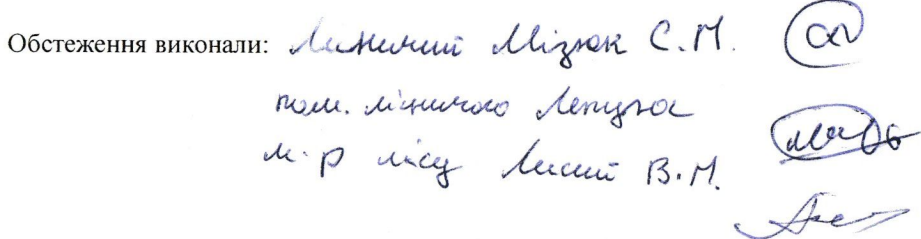 Обстеження виконали: Лісничий Мізюк С.М.
пом. лісничого
м-р лісу Лисий В.М.